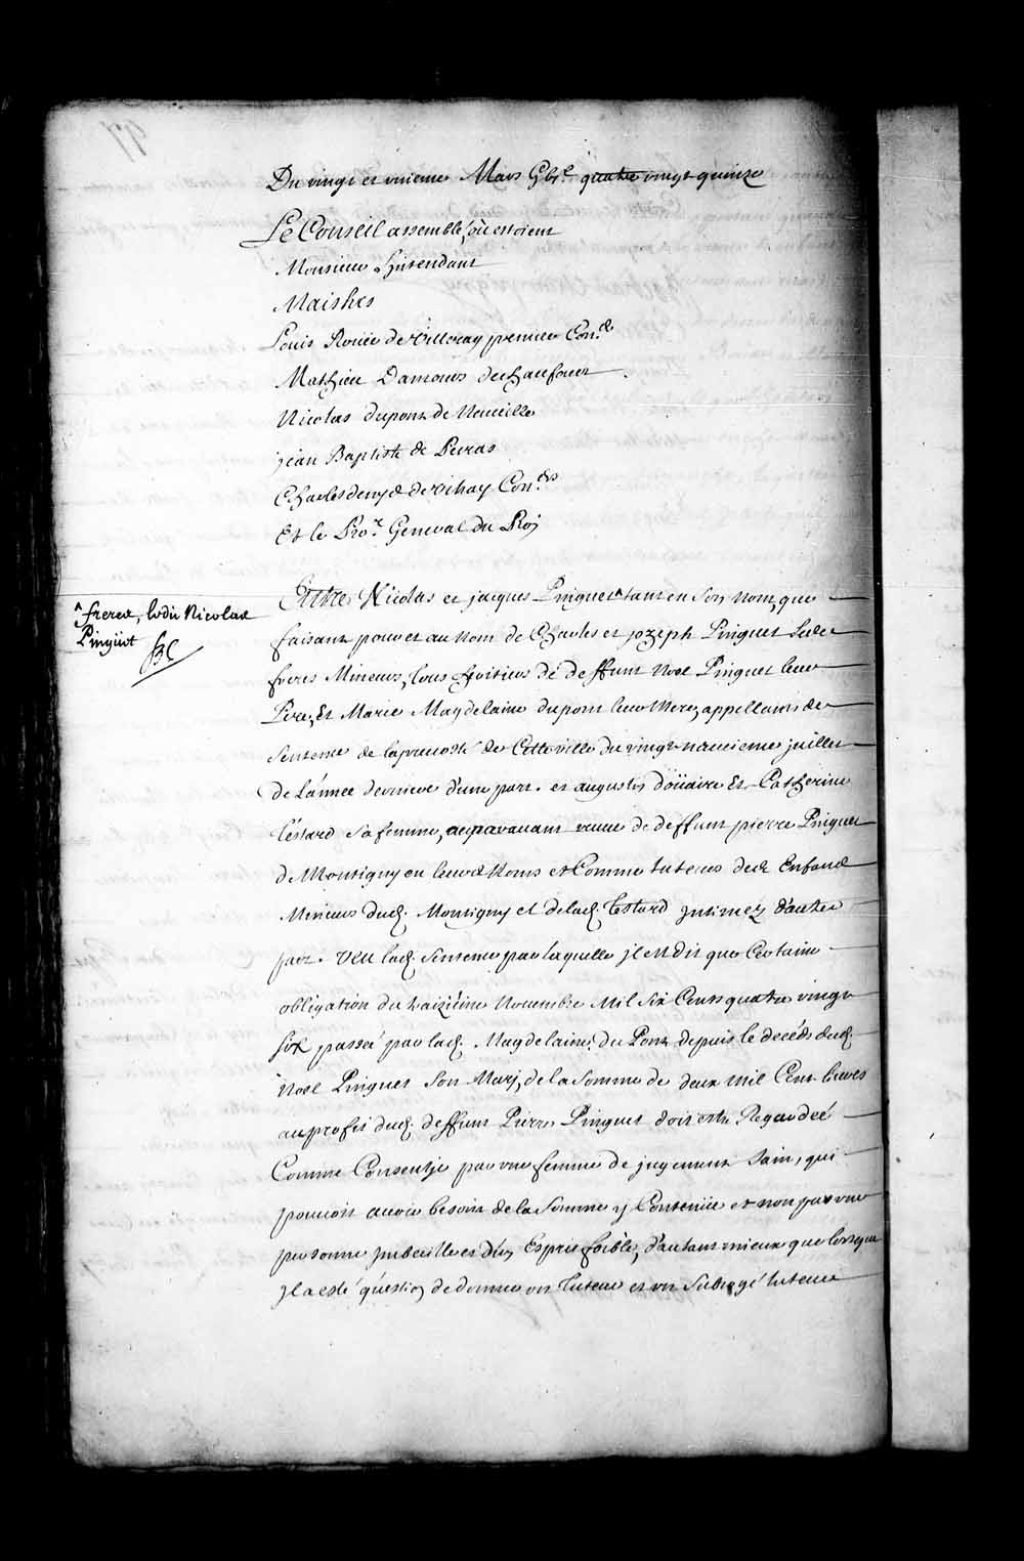 97
Du vingt et unieme Mars Gbc quatre vingt quinze
Le Conseil assemblé, où estoient
Monsieur L'Intendant
Maistres
Louis Roüer de Villeray premier Con.er
Mathieu Damours deschaufour
Nicolas dupont de Neuville
jean Baptiste de Peiras
Charles denys de Vitray Con.ers
Et le Pro.r General du Roy
Entre Nicolas et jacques Pinguet ^ tant en son nom, que
^ freres, ledit Nicolas
Pinguet
faisant pour et au Nom de Charles et jozeph Pinguet Ses
freres Mineurs, tous heritiers de deffunt Noel Pinguet leur
Pere, Et Marie Magdelaine dupont leur Mere, appellans de
Sentence de la prevosté de Cette ville du vingt neufieme juillet
de L'année derniere d'une part. et augustin doüaire Et Catherine
Testard Sa femme, auparavant veuve de deffunt pierre Pinguet
de Montigny en leurs Noms et Comme tuteurs des Enfans
Mineurs dud. Montigny et de lad. Testard Intimez d'autre
part. Veu lad. Sentence par laquelle jl est dit que Certaine
obligation du traizième Novembre Mil Six Cents quatre vingt
Six passeé par lad. Magdelaine du Pont depuis le decéds dud.
Noel Pinguet Son Mary, de la Somme de deux Mil Cent livres
au profit dud. deffunt Pierre Pinguet doit estre Regardeé
Comme Consentje par une femme de jugement Sain, qui
pouvoit avoir besoin de la Somme y Contenüe et non par une
personne jmbecille et d'un Esprit foible, d'autant mieux que lorsque
jl a esté question de donner un Tuteur et un Subrogé tuteur